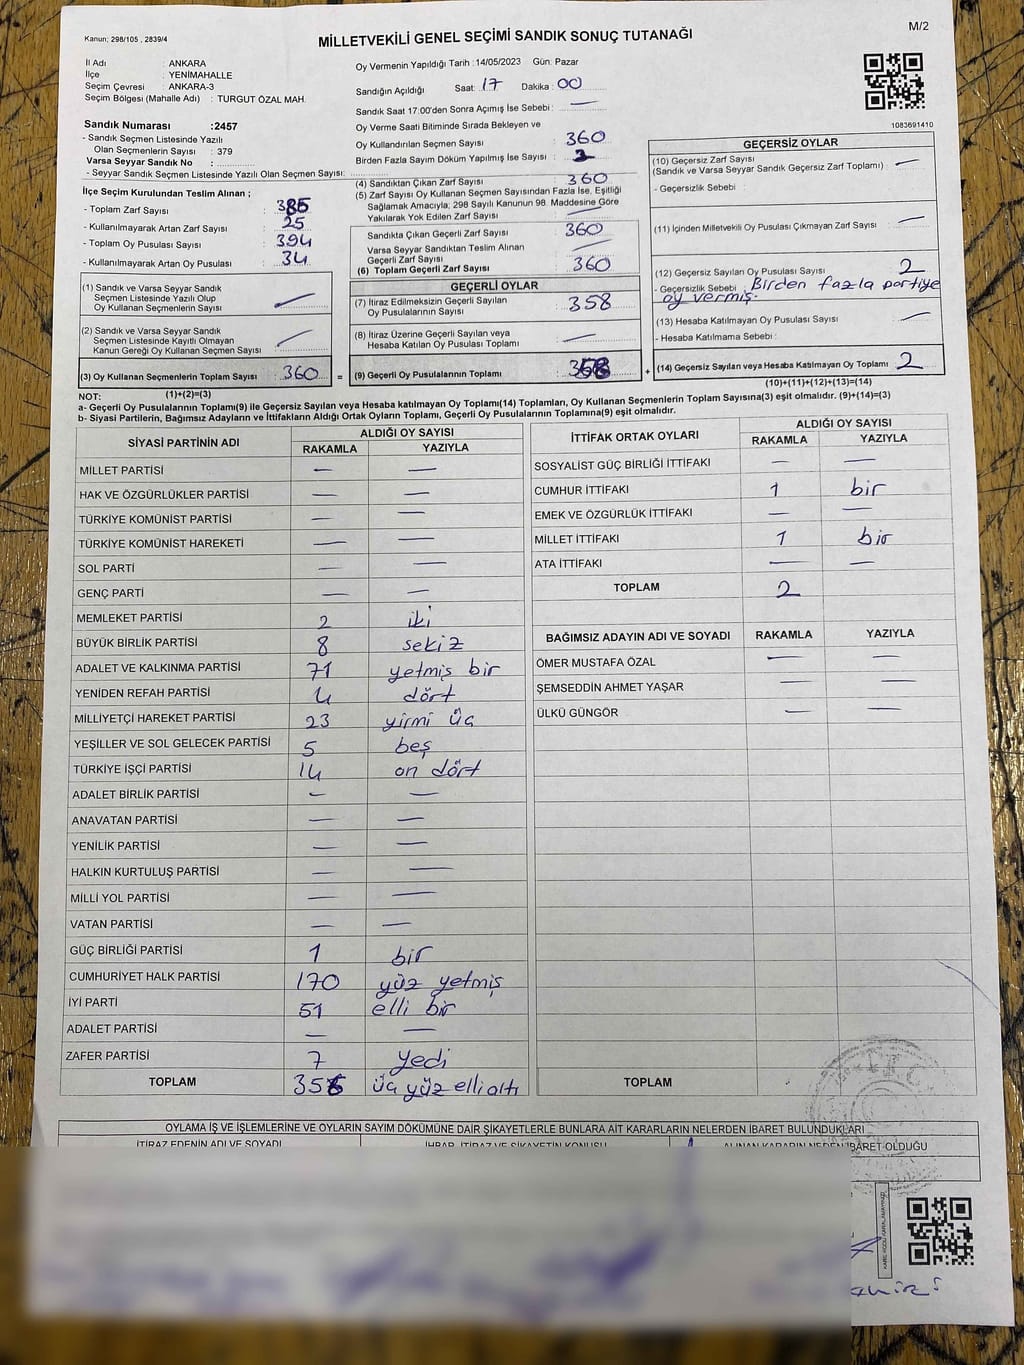 Kanun; 298/105 , 2839/4
MİLLETVEKİLİ GENEL SEÇİMİ SANDIK SONUÇ TUTANAĞI
M/2
İl Adı : ANKARA
İlçe : YENİMAHALLE
Seçim Çevresi : ANKARA-3
Seçim Bölgesi (Mahalle Adı) : TURGUT ÖZAL MAH.
Sandık Numarası :2457
- Sandık Seçmen Listesinde Yazılı
Olan Seçmenlerin Sayısı : 379
Varsa Seyyar Sandık No :
- Seyyar Sandık Seçmen Listesinde Yazılı Olan Seçmen Sayısı:
İlçe Seçim Kurulundan Teslim Alınan ;
- Toplam Zarf Sayısı : 385
- Kullanılmayarak Artan Zarf Sayısı : 25
- Toplam Oy Pusulası Sayısı : 394
- Kullanılmayarak Artan Oy Pusulası : 34
(1) Sandık ve Varsa Seyyar Sandık
Seçmen Listesinde Yazılı Olup
Oy Kullanan Seçmenlerin Sayısı : —
(2) Sandık ve Varsa Seyyar Sandık
Seçmen Listesinde Kayıtlı Olmayan
Kanun Gereği Oy Kullanan Seçmen Sayısı : —
(3) Oy Kullanan Seçmenlerin Toplam Sayısı : 360 =
Oy Vermenin Yapıldığı Tarih : 14/05/2023 Gün: Pazar
Sandığın Açıldığı Saat: 17 Dakika : 00
Sandık Saat 17:00'den Sonra Açımış İse Sebebi : —
Oy Verme Saati Bitiminde Sırada Bekleyen ve
Oy Kullandırılan Seçmen Sayısı : 360
Birden Fazla Sayım Döküm Yapılmış İse Sayısı :
(4) Sandıktan Çıkan Zarf Sayısı : 360
(5) Zarf Sayısı Oy Kullanan Seçmen Sayısından Fazla İse, Eşitliği
Sağlamak Amacıyla; 298 Sayılı Kanunun 98. Maddesine Göre
Yakılarak Yok Edilen Zarf Sayısı : —
Sandıkta Çıkan Geçerli Zarf Sayısı : 360
Varsa Seyyar Sandıktan Teslim Alınan
Geçerli Zarf Sayısı : —
(6) Toplam Geçerli Zarf Sayısı : 360
GEÇERLİ OYLAR
(7) İtiraz Edilmeksizin Geçerli Sayılan
Oy Pusulalarının Sayısı : 358
(8) İtiraz Üzerine Geçerli Sayılan veya
Hesaba Katılan Oy Pusulası Toplamı : —
(9) Geçerli Oy Pusulalarının Toplamı : 358 +
1083691410
GEÇERSİZ OYLAR
(10) Geçersiz Zarf Sayısı
(Sandık ve Varsa Seyyar Sandık Geçersiz Zarf Toplamı) : —
- Geçersizlik Sebebi :
(11) İçinden Milletvekili Oy Pusulası Çıkmayan Zarf Sayısı : —
(12) Geçersiz Sayılan Oy Pusulası Sayısı : 2
- Geçersizlik Sebebi : Birden fazla partiye
oy vermiş.
(13) Hesaba Katılmayan Oy Pusulası Sayısı : —
- Hesaba Katılmama Sebebi :
(14) Geçersiz Sayılan veya Hesaba Katılmayan Oy Toplamı : 2
(10)+(11)+(12)+(13)=(14)
NOT: (1)+(2)=(3)
a- Geçerli Oy Pusulalarının Toplamı(9) ile Geçersiz Sayılan veya Hesaba katılmayan Oy Toplamı(14) Toplamları, Oy Kullanan Seçmenlerin Toplam Sayısına(3) eşit olmalıdır. (9)+(14)=(3)
b- Siyasi Partilerin, Bağımsız Adayların ve İttifakların Aldığı Ortak Oyların Toplamı, Geçerli Oy Pusulalarının Toplamına(9) eşit olmalıdır.
SİYASİ PARTİNİN ADI ALDIĞI OY SAYISI
RAKAMLA YAZIYLA
MİLLET PARTİSİ — —
HAK VE ÖZGÜRLÜKLER PARTİSİ — —
TÜRKİYE KOMÜNİST PARTİSİ — —
TÜRKİYE KOMÜNİST HAREKETİ — —
SOL PARTİ — —
GENÇ PARTİ — —
MEMLEKET PARTİSİ 2 iki
BÜYÜK BİRLİK PARTİSİ 8 sekiz
ADALET VE KALKINMA PARTİSİ 71 yetmiş bir
YENİDEN REFAH PARTİSİ 4 dört
MİLLİYETÇİ HAREKET PARTİSİ 23 yirmi üç
YEŞİLLER VE SOL GELECEK PARTİSİ 5 beş
TÜRKİYE İŞÇİ PARTİSİ 14 on dört
ADALET BİRLİK PARTİSİ — —
ANAVATAN PARTİSİ — —
YENİLİK PARTİSİ — —
HALKIN KURTULUŞ PARTİSİ — —
MİLLİ YOL PARTİSİ — —
VATAN PARTİSİ — —
GÜÇ BİRLİĞİ PARTİSİ 1 bir
CUMHURİYET HALK PARTİSİ 170 yüz yetmiş
İYİ PARTİ 51 elli bir
ADALET PARTİSİ — —
ZAFER PARTİSİ 7 yedi
TOPLAM 356 üç yüz elli altı
İTTİFAK ORTAK OYLARI ALDIĞI OY SAYISI
RAKAMLA YAZIYLA
SOSYALİST GÜÇ BİRLİĞİ İTTİFAKI — —
CUMHUR İTTİFAKI 1 bir
EMEK VE ÖZGÜRLÜK İTTİFAKI — —
MİLLET İTTİFAKI 1 bir
ATA İTTİFAKI — —
TOPLAM 2
BAĞIMSIZ ADAYIN ADI VE SOYADI RAKAMLA YAZIYLA
ÖMER MUSTAFA ÖZAL — —
ŞEMSEDDİN AHMET YAŞAR — —
ÜLKÜ GÜNGÖR — —
TOPLAM
OYLAMA İŞ VE İŞLEMLERİNE VE OYLARIN SAYIM DÖKÜMÜNE DAİR ŞİKAYETLERLE BUNLARA AİT KARARLARIN NELERDEN İBARET BULUNDUKLARI
İTİRAZ EDENİN ADI VE SOYADI İHBAR, İTİRAZ VE ŞİKAYETİN KONUSU ALINAN KARARIN NEDEN İBARET OLDUĞU